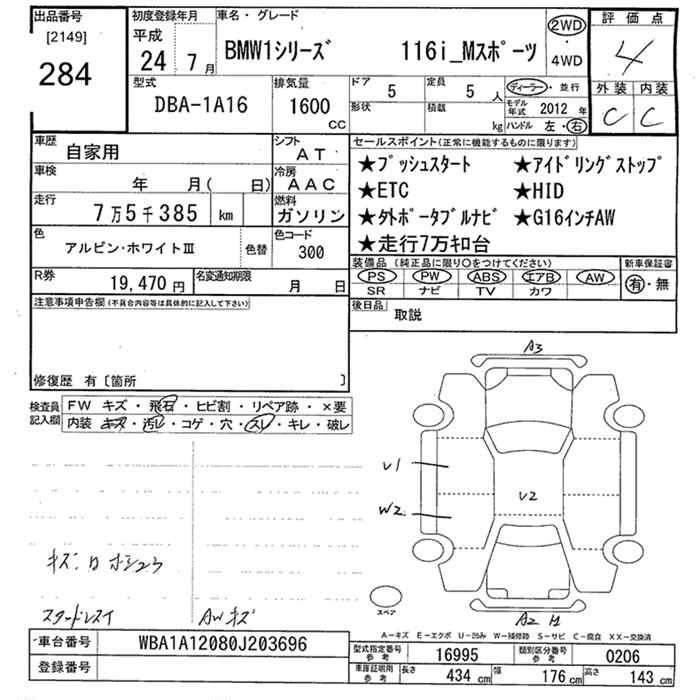 出品番号
[2149]
284
初度登録年月
平成
24 7 月
車名・グレード
BMW1シリーズ 116i_Mスポーツ
2WD
・
4WD
評価点
4
外装 内装
C C
型式
DBA-1A16
排気量
1600
CC
ドア
5
定員
5 人
形状
積載
kg
ディーラー・並行
モデル年式 2012 年
ハンドル 左・右
車歴
自家用
シフト
AT
車検
年 月( 日)
冷房
AAC
走行
7万5千385 km
燃料
ガソリン
色
アルピン・ホワイトⅢ
色替
色コード
300
R券
19,470 円
名変通知期限
月 日
セールスポイント(正常に機能するものに限ります)
★プッシュスタート ★アイドリングストップ
★ETC ★HID
★外ポータブルナビ ★G16インチAW
★走行7万キロ台
装備品 (純正品に限り○をつけてください)
PS PW ABS エアB AW
SR ナビ TV カワ
新車保証書
有・無
後日品
取説
注意事項申告欄(不具合内容等は具体的に記入して下さい)
修復歴 有〔箇所 〕
検査員記入欄
FW キズ・飛石・ヒビ割・リペア跡・×要
内装 キズ・汚レ・コゲ・穴・スレ・キレ・破レ
A3
U1
W2
U2
A2
スペア
スタッドレスタイ
AWキズ
A-キズ E-エクボ U-凹み W-補修跡 S-サビ C-腐食 XX-交換済
車台番号
WBA1A12080J203696
登録番号
型式指定番号
参考
16995
類別区分番号
参考
0206
車庫証明用
参考
長さ 434 cm 幅 176 cm 高さ 143 cm